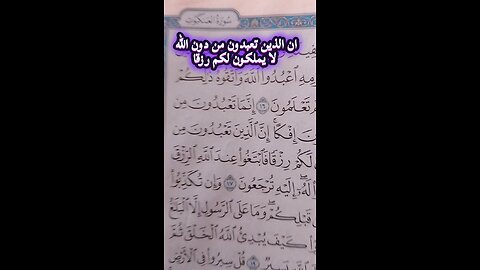 سُورَةُ العَنكَبُوتِ
ان الذين تعبدون من دون الله
لا يملكون لكم رزقا
ٱعۡبُدُواْ ٱللَّهَ وَٱتَّقُوهُۖ ذَٰلِكُمۡ
تَعۡلَمُونَ ١٦ إِنَّمَا تَعۡبُدُونَ مِن
إِفۡكًاۚ إِنَّ ٱلَّذِينَ تَعۡبُدُونَ مِن
لَكُمۡ رِزۡقٗا فَٱبۡتَغُواْ عِندَ ٱللَّهِ ٱلرِّزۡقَ
لَهُۥٓۖ إِلَيۡهِ تُرۡجَعُونَ ١٧ وَإِن تُكَذِّبُواْ
قَبۡلِكُمۡۖ وَمَا عَلَى ٱلرَّسُولِ إِلَّا ٱلۡبَلَٰغُ
كَيۡفَ يُبۡدِئُ ٱللَّهُ ٱلۡخَلۡقَ ثُمَّ
قُلۡ سِيرُواْ فِي ٱلۡأَرۡضِ